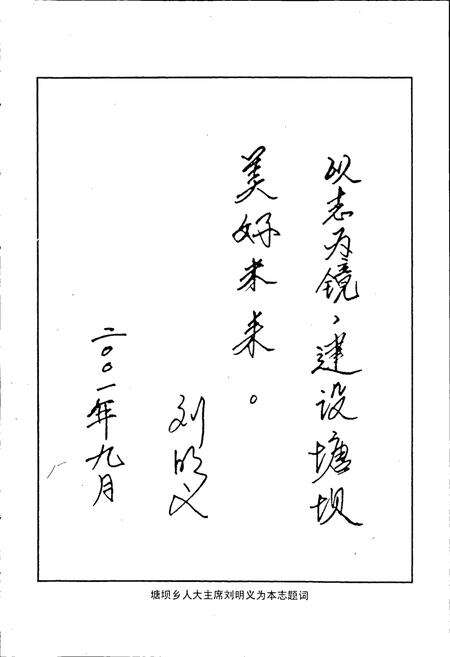 以志为镜，建设塘坝
美好未来。
刘明义
二〇〇一年九月
塘坝乡人大主席刘明义为本志题词